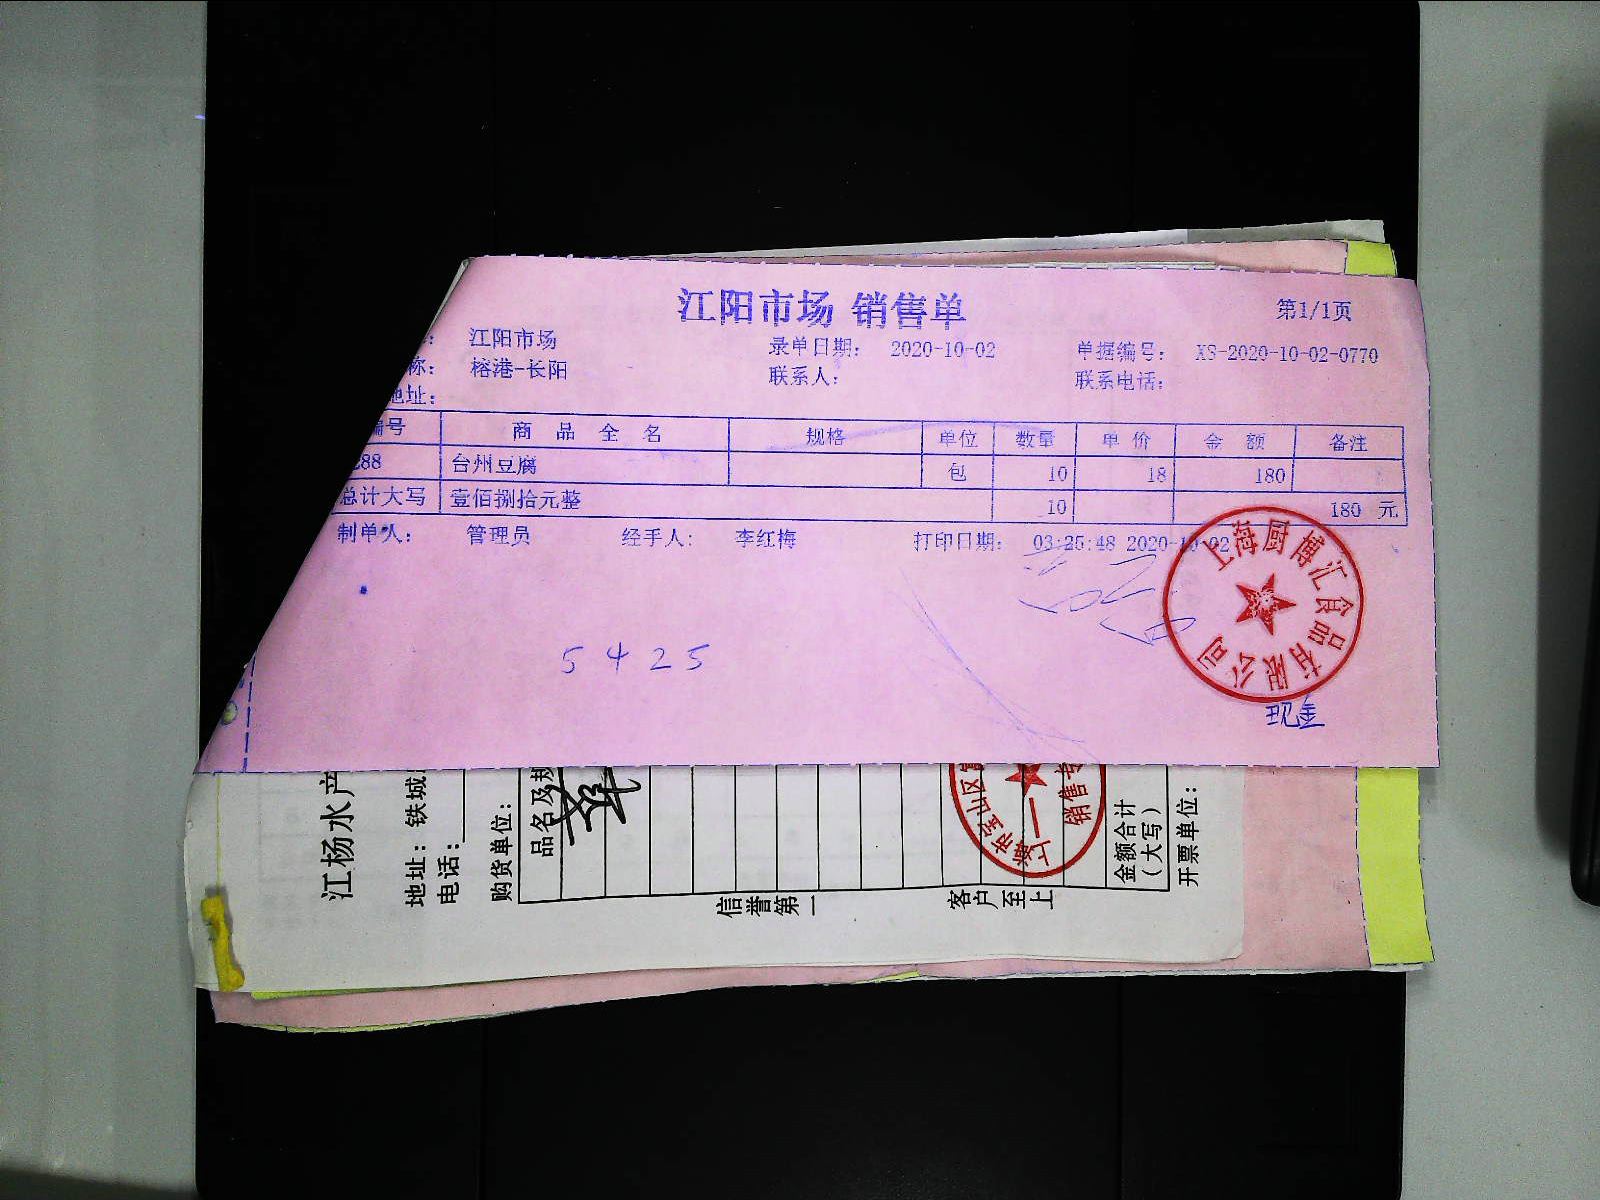 江阳市场 销售单
第1/1页
: 江阳市场 录单日期: 2020-10-02 单据编号: XS-2020-10-02-0770
称: 榕港-长阳 联系人: 联系电话:
地址:
编号 商品全名 规格 单位 数量 单价 金额 备注
288 台州豆腐 包 10 18 180
总计大写 壹佰捌拾元整 10 180 元
制单人: 管理员 经手人: 李红梅 打印日期: 03:25:48 2020-10-02
上海厨博汇食品有限公司
5425
现金
江杨水产
地址: 铁城
电话:
购货单位:
品名及规
金额合计
(大写)
开票单位:
信誉第一
客户至上
宝山区
销售专